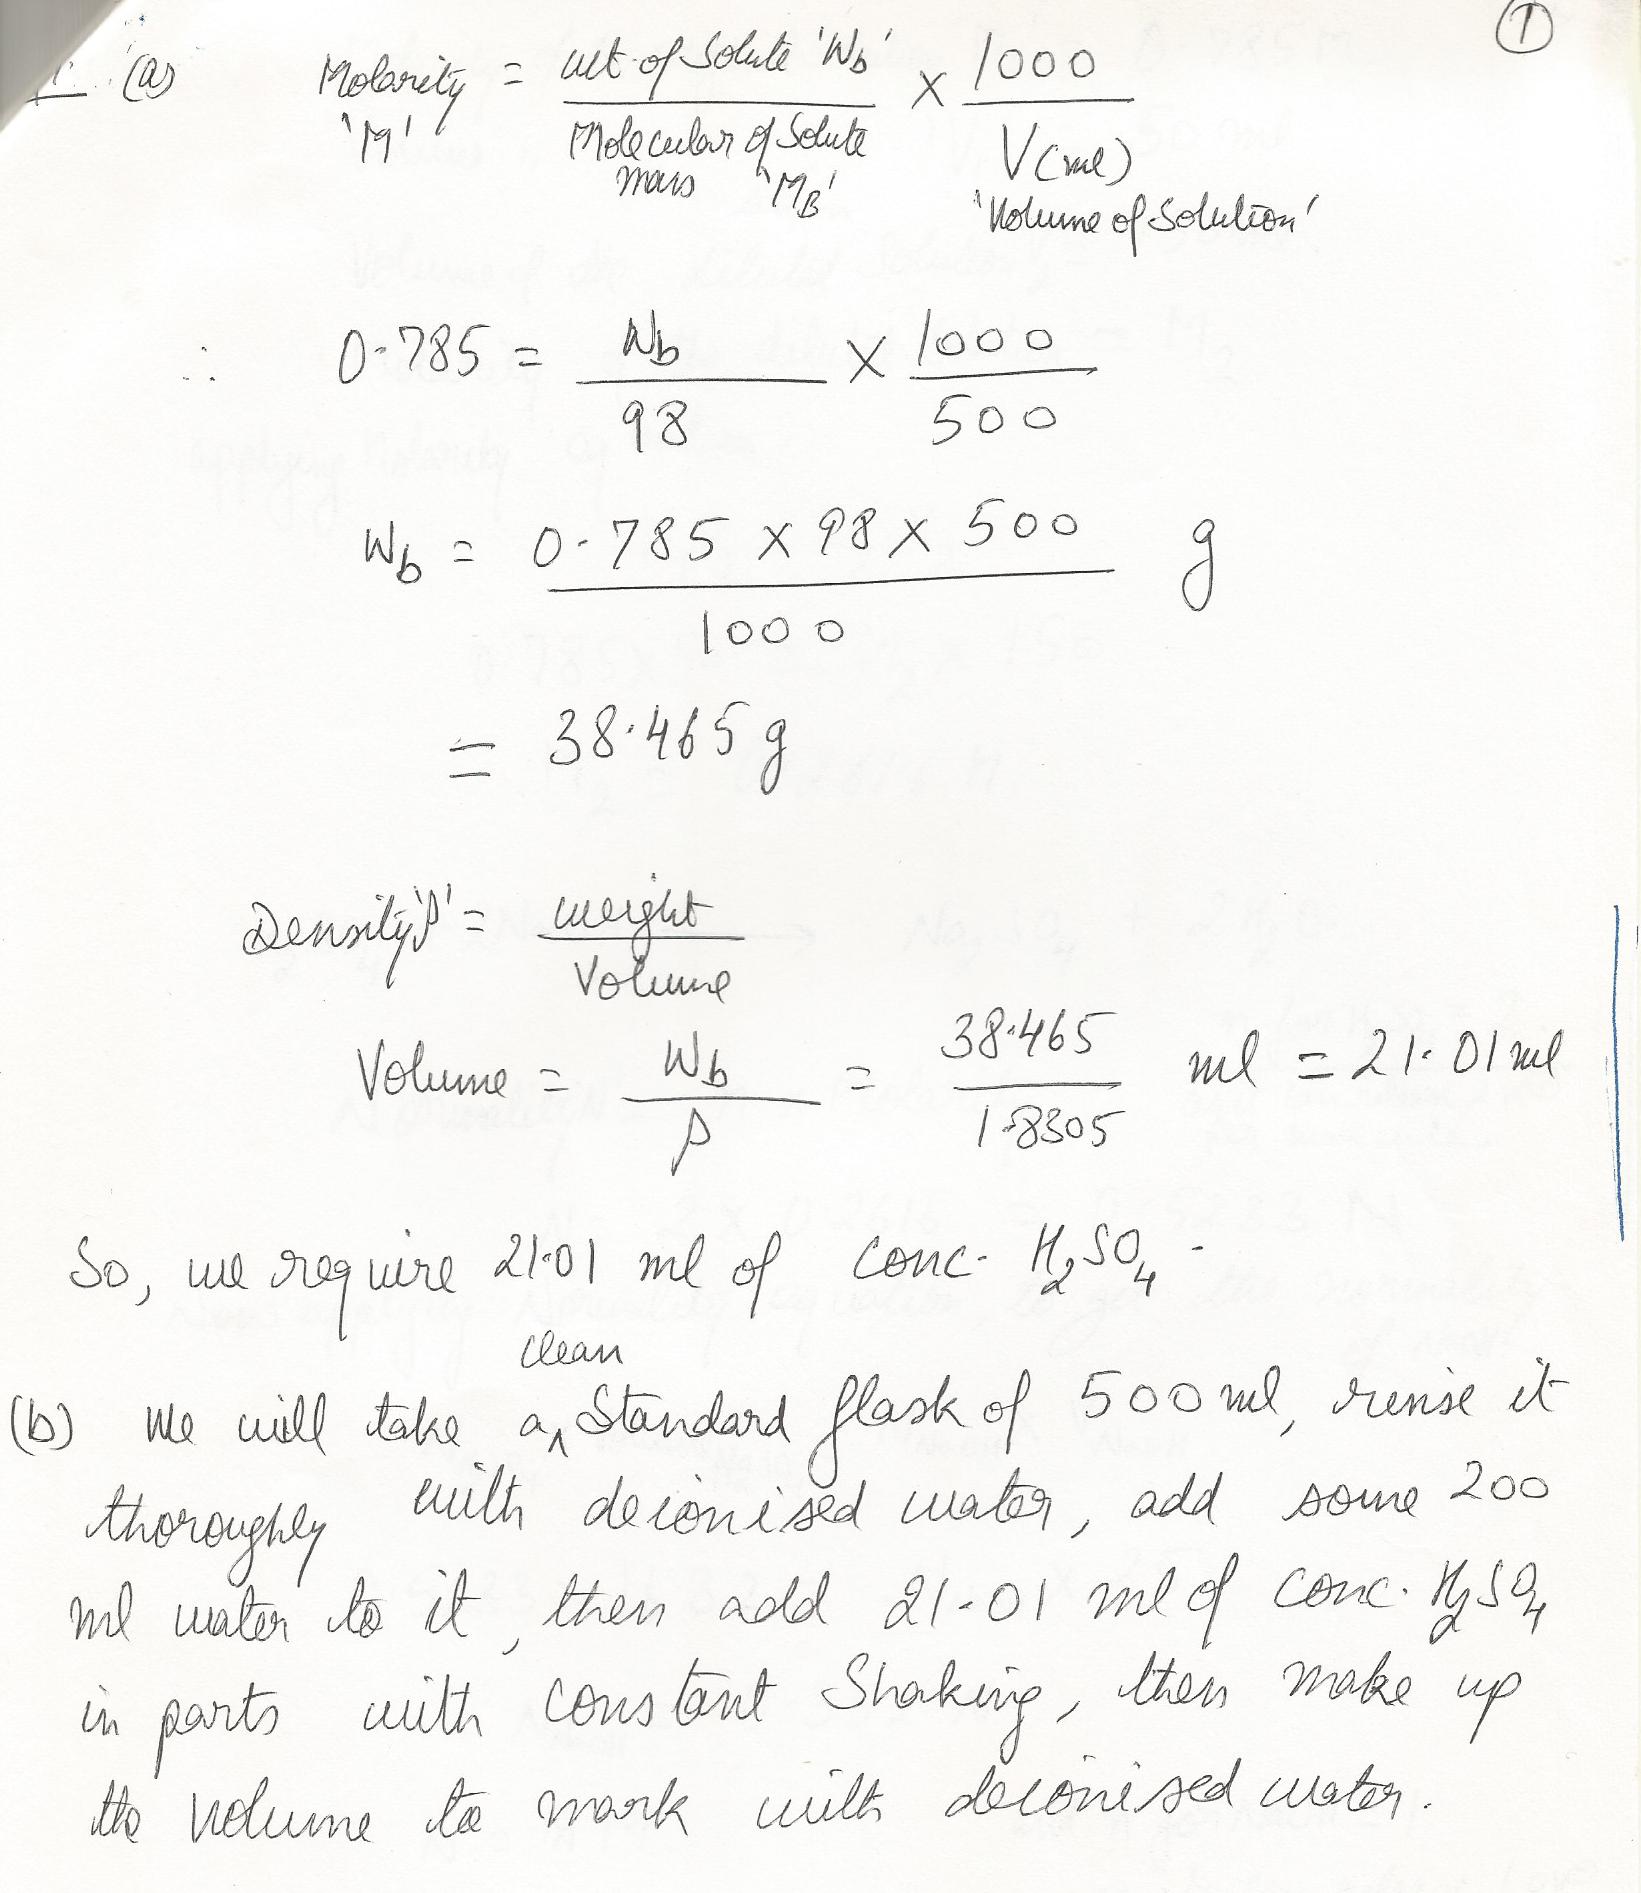 ①
(a) Molarity 'M' = wt. of Solute 'Wb' / Molecular mass of Solute 'MB' × 1000 / V(ml) 'Volume of Solution'
∴ 0.785 = Wb / 98 × 1000 / 500
Wb = 0.785 × 98 × 500 / 1000 g
= 38.465 g
Density 'ρ' = weight / Volume
Volume = Wb / ρ = 38.465 / 1.8305 ml = 21.01 ml
So, we require 21.01 ml of conc. H₂SO₄.
(b) We will take a clean Standard flask of 500 ml, rinse it
thoroughly with deionised water, add some 200
ml water to it, then add 21.01 ml of conc. H₂SO₄
in parts with constant Shaking, then make up
the volume to mark with deionised water.